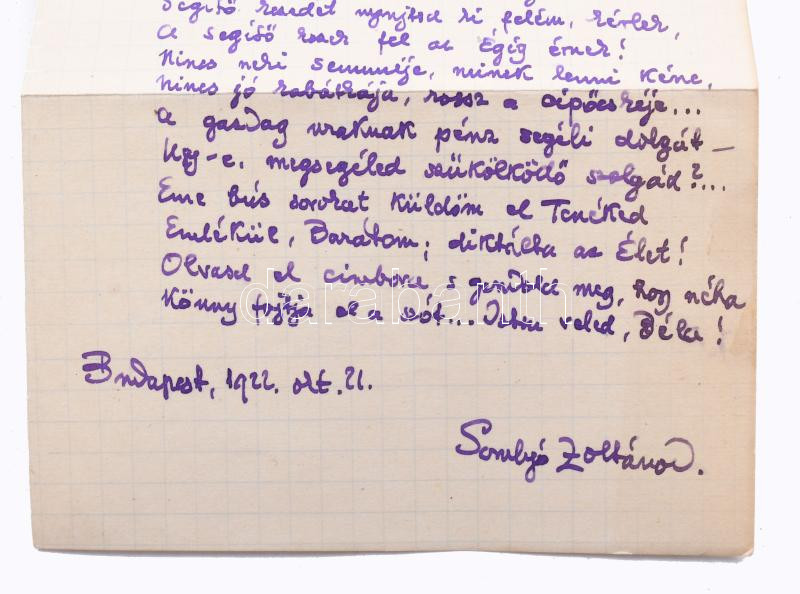 Segítő kezedet nyujtsd ki felém, kérlek,
A segítő kezek fel az Égig érnek!
Nincs neki semmije, minek lenni kéne,
Nincs jó kabátkája, rossz a cipőcskéje...
A gazdag uraknak pénz segéli dolgát —
Úgy-e, megsegéled szűkölködő szolgád?...
Eme bús sorokat küldöm el Tenéked
Emlékül, Barátom; diktálta az Élet!
Olvasd el cimbora s gondold meg, hogy néha
Könny fojtja el a szót... Isten veled, Béla!
darabanth
Budapest, 1922. okt. 21.
Somlyó Zoltánod.